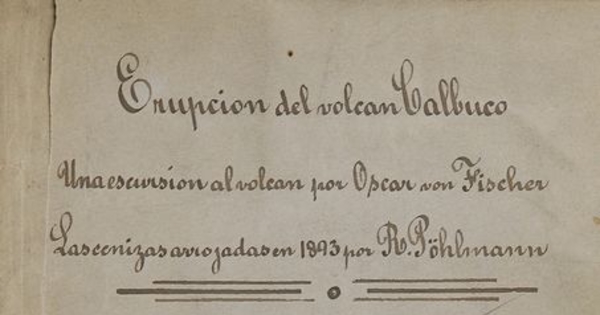 Erupcion del volcan Calbuco
Una escursion al volcan por Oscar von Fischer
Las cenizas arrojadas en 1893 por R. Pöhlmann